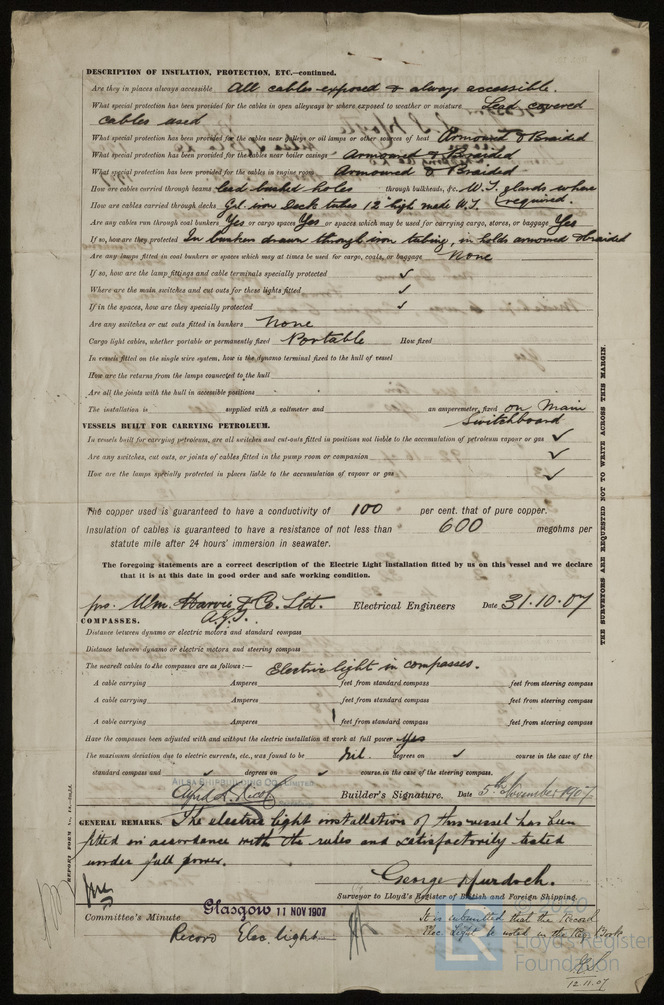 DESCRIPTION OF INSULATION, PROTECTION, ETC.—continued.
Are they in places always accessible All cables exposed & always accessible.
What special protection has been provided for the cables in open alleyways or where exposed to weather or moisture Lead covered
cables used
What special protection has been provided for the cables near galleys or oil lamps or other sources of heat Armoured & Braided
What special protection has been provided for the cables near boiler casings Armoured & Braided
What special protection has been provided for the cables in engine room Armoured & Braided
How are cables carried through beams lead bushed holes through bulkheads, &c. W.T. glands where
How are cables carried through decks Gal iron Deck tubes 12" high made W.T. (required.
Are any cables run through coal bunkers Yes or cargo spaces Yes or spaces which may be used for carrying cargo, stores, or baggage Yes
If so, how are they protected In bunkers drawn through iron tubing, in holds armoured & braided
Are any lamps fitted in coal bunkers or spaces which may at times be used for cargo, coals, or baggage None
If so, how are the lamp fittings and cable terminals specially protected ✓
Where are the main switches and cut outs for these lights fitted ✓
If in the spaces, how are they specially protected ✓
Are any switches or cut outs fitted in bunkers None
Cargo light cables, whether portable or permanently fixed Portable How fixed
In vessels fitted on the single wire system, how is the dynamo terminal fixed to the hull of vessel
How are the returns from the lamps connected to the hull
Are all the joints with the hull in accessible positions
The installation is supplied with a voltmeter and an amperemeter, fixed on Main
Switchboard
VESSELS BUILT FOR CARRYING PETROLEUM.
In vessels built for carrying petroleum, are all switches and cut-outs fitted in positions not liable to the accumulation of petroleum vapour or gas ✓
Are any switches, cut outs, or joints of cables fitted in the pump room or companion ✓
How are the lamps specially protected in places liable to the accumulation of vapour or gas ✓
The copper used is guaranteed to have a conductivity of 100 per cent. that of pure copper.
Insulation of cables is guaranteed to have a resistance of not less than 600 megohms per
statute mile after 24 hours' immersion in seawater.
The foregoing statements are a correct description of the Electric Light installation fitted by us on this vessel and we declare
that it is at this date in good order and safe working condition.
pro. Wm. Harvie & Co. Ltd. Electrical Engineers Date 31.10.07
COMPASSES.
Distance between dynamo or electric motors and standard compass
Distance between dynamo or electric motors and steering compass
The nearest cables to the compasses are as follows:— Electric light in compasses.
A cable carrying Amperes feet from standard compass feet from steering compass
A cable carrying Amperes feet from standard compass feet from steering compass
A cable carrying Amperes feet from standard compass feet from steering compass
Have the compasses been adjusted with and without the electric installation at work at full power Yes
The maximum deviation due to electric currents, etc., was found to be Nil. degrees on ✓ course in the case of the
standard compass and ✓ degrees on ✓ course in the case of the steering compass.
AILSA SHIPBUILDING CO. LIMITED
Builder's Signature. Date 5th November 1907.
GENERAL REMARKS. The electric light installation of this vessel has been
fitted in accordance with the rules and satisfactorily tested
under full power.
George Murdoch.
Surveyor to Lloyd's Register of British and Foreign Shipping.
Committee's Minute Glasgow 11 NOV 1907
Record Elec. light
It is submitted that the Record
Elec Light be noted in the Reg. Book
12.11.07
THE SURVEYORS ARE REQUESTED NOT TO WRITE ACROSS THIS MARGIN.
LR
Lloyd's Register
Foundation